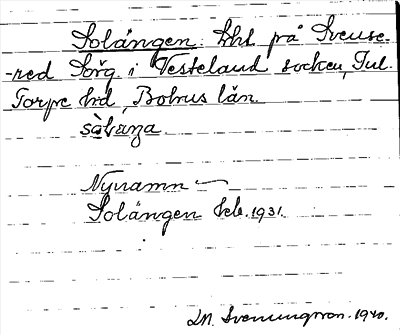 Solången. Lht på Svense-
-red Sörg. i Vesteland socken, Inl.
Torpe hd, Bohus län.
Nynamn
Solången Ek. 1931.
J.M. Svenningsson. 1940.